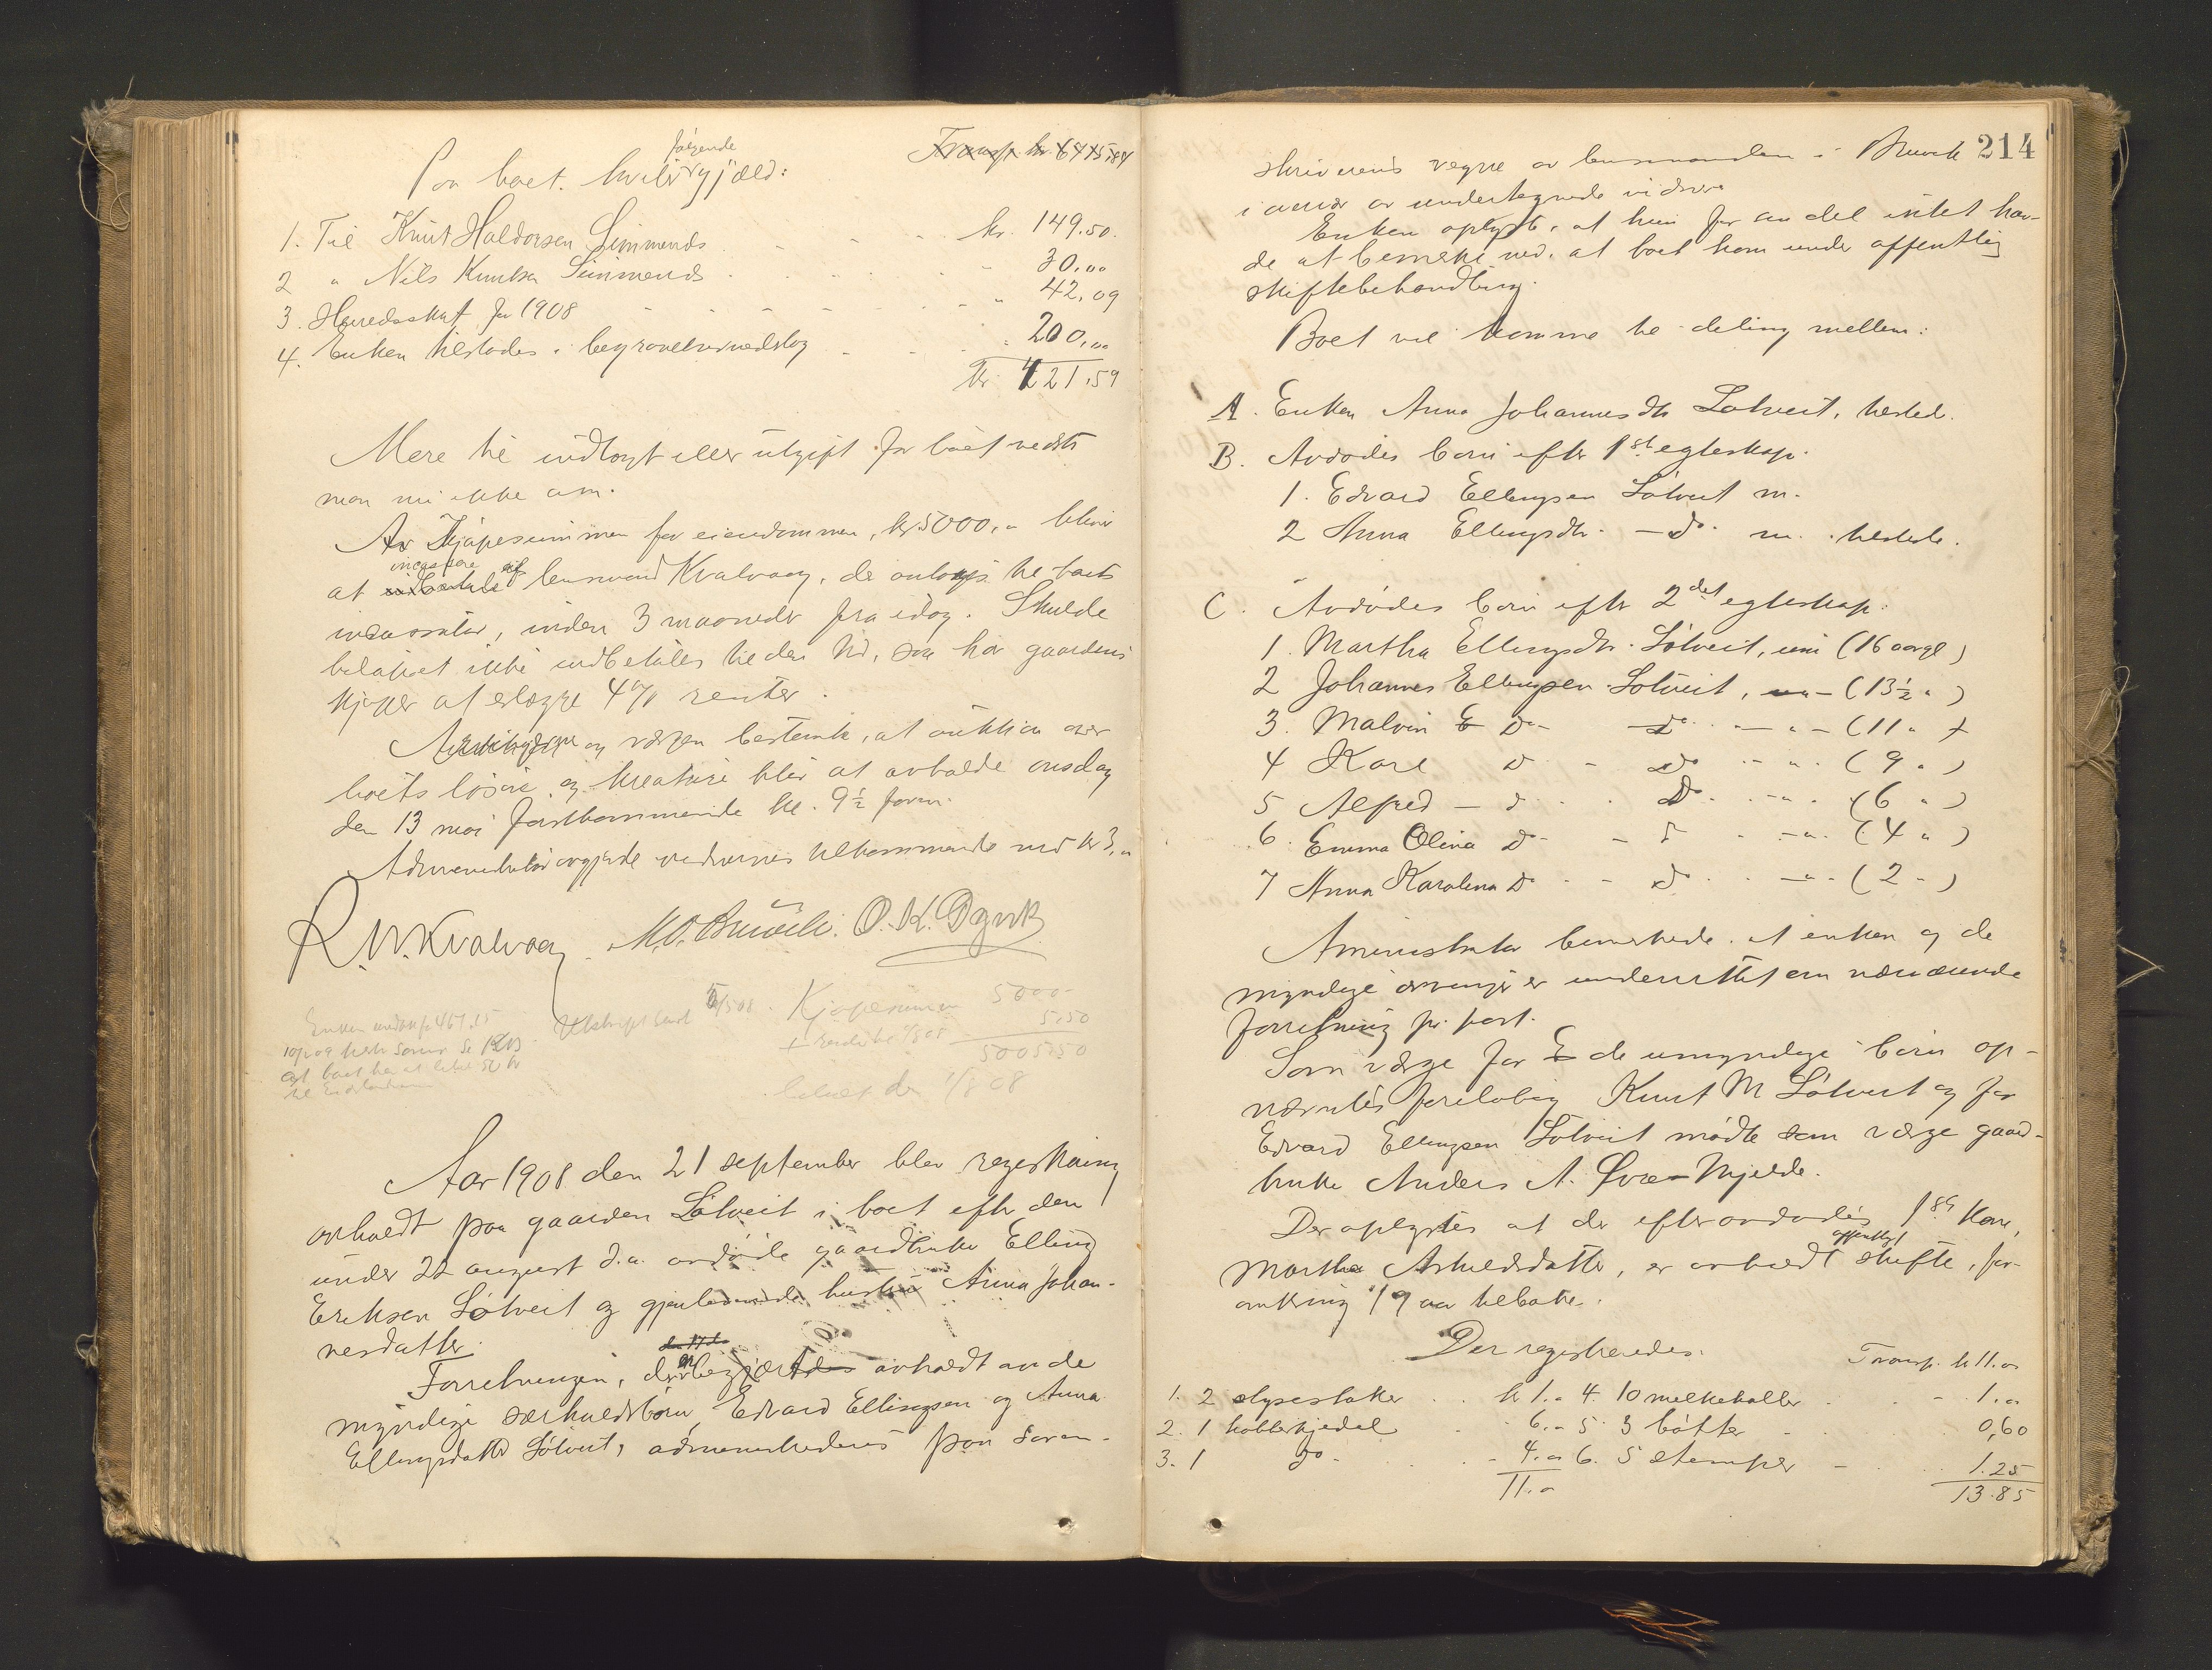 Transp. kr 6475,84
Paa boet hviler følgende gjæld:
1. Til Knut Haldorsen Simmenes kr. 149.50.
2 " Nils Knutsen Simmenes 30,00
3. Herredsskat for 1908 42,09
4. Enken tilstodes i begravelsesvederlag 200,00
Kr 421.59
Mere til indtægt eller utgift for boet vedste
man nu ikke om.
Av Kjøpesummen for eiendommen, kr 5000,00 bliver
at incassere af lensmand Kvalvaag, der antages til boets
incassator, inden 3 maaneder fra idag. Skulde
beløpet ikke indbetales til den tid, saa har gaardens
kjøper at erlægge 4% renter.
Arvinger og værgen bestemte, at auktion over
boets løsøre og kreature blir at avholde onsdag
den 13 mai førstkommende kl. 9½ form.
Administrator avgjorde vidnernes tilkommende med kr 3,00
R. N. Kvalvaag. M. O. Bruvik. O. K. Dyvik
Utskrift sendt /508. Kjøpesummen 5000-
+ renter til 1/8 08 5.50
5005.50
betalt den 1/8 08
Aar 1908 den 21 september blev registrering
avholdt paa gaarden Løtveit i boet efter den
under 22 august d.a. avdøde gaardbruker Elling
Eriksen Løtveit og gjenlevende hustru Anna Johan-
nesdatter.
Forretningen, der er begjært avholdt av de
myndige særkuldsbørn Edvard Ellingsen og Anna
Ellingsdatter Løtveit, administreredes paa Soren-
214
skriverens vegne av lensmanden i Bruvik
i nærvær av undertegnede vidner
Enken oplyste, at hun for sin del intet hav-
de at bemerke ved, at boet kom under offentlig
skiftebehandling.
Boet vil komme til deling mellem:
A. Enken Anna Johannesdtr Løtveit, tilsted.
B. Avdødes børn efter 1ste egteskap.
1. Edvard Ellingsen Løtveit m.
2 Anna Ellingsdtr. - do. m. tilstede.
C. Avdødes børn efter 2det egteskap:
1. Martha Ellingsdtr. Løtveit, um (16 aar gl)
2 Johannes Ellingsen Løtveit, - " - (13½ " )
3. Malvin E Do - do - " - (11 " )
4 Karl D - do - " - (9 " )
5 Alfred - d - Do - " - (6 " )
6. Emma Olina D - - d - " - (4 " )
7 Anna Karolina D - - do - " - (2 " )
Aministrator bemerkede at enken og de
myndige arvinger er underrettet om nærværende
forretning pr. post.
Som værge for de umyndige børn op-
nævntes foreløbig Knut M Løtveit og for
Edvard Ellingsen Løtveit mødte som værge gaard-
bruker Anders A. Øvre-Mjelde.
Der oplystes at der efter avdødes 1ste Kone,
Martha Askildsdatter, er avholdt offentligt skifte, for
omkring 19 aar tilbake.
Der registreredes:
Transp. kr 11.00
1. 2 lysestaker kr 1.00 4. 10 melkekoller 1.00
2. 1 kobberkjedel 6.00 5. 3 bøtter 0,60
3. 1 do - 4.00 6. 5 stamper 1.25
11.00 13.85